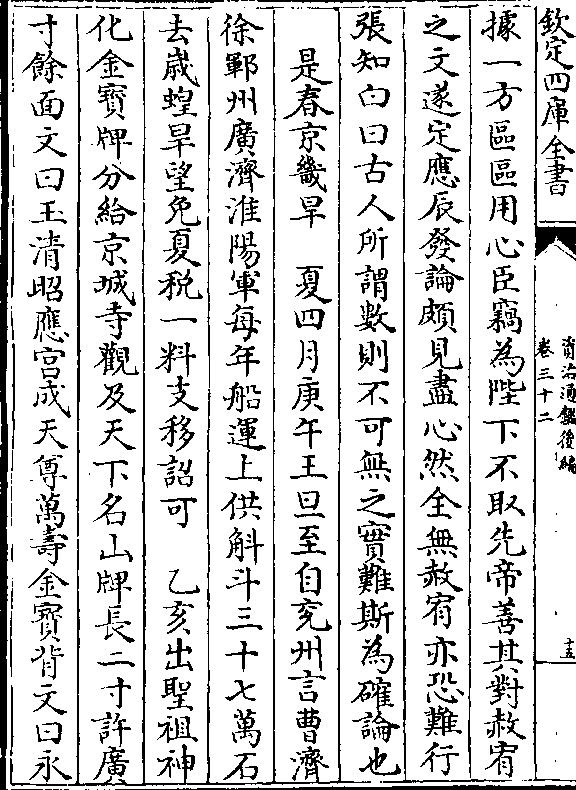 欽定四庫全書
資治通鑑後編
卷三十二
十五
據一方區區用心臣竊為陛下不取先帝善其對赦宥
之文遂定應辰發論頗見盡心然全無赦宥亦恐難行
張知白曰古人所謂數則不可無之實難斯為確論也
是春京畿旱　夏四月庚午王旦至自兖州言曹濟
徐鄆州廣濟淮陽軍每年船運上供斛斗三十七萬石
去歲蝗旱望免夏税一料支移詔可　乙亥出聖祖神
化金寶牌分給京城寺觀及天下名山牌長二寸許廣
寸餘面文曰玉清昭應宫成天尊萬壽金寶背文曰永